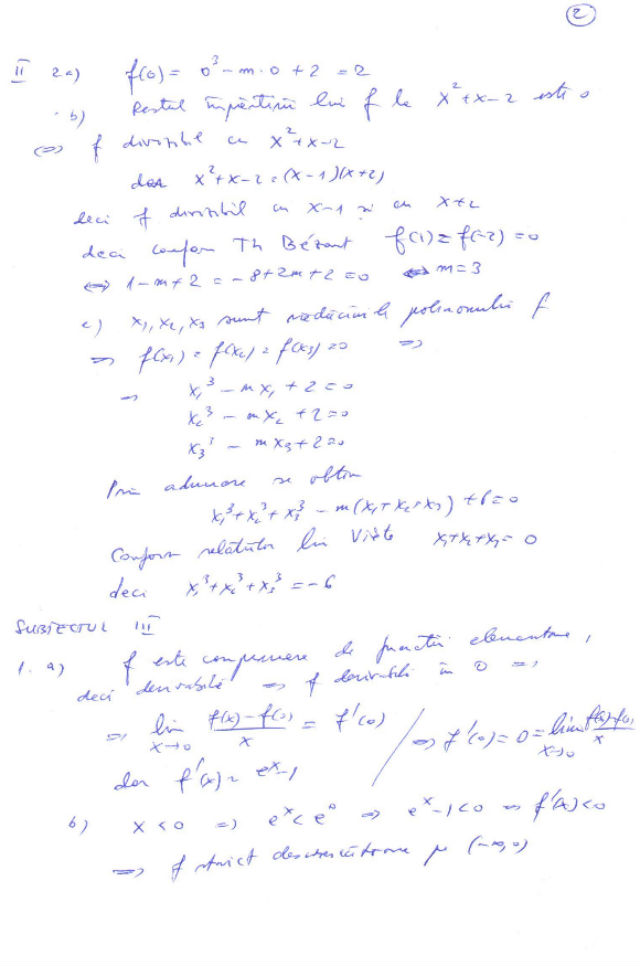 2
II 2 a) f(0) = 0³ - m·0 + 2 = 2
b) Restul împărțirii lui f la x² + x - 2 este 0
⇔ f divizibil cu x² + x - 2
dar x² + x - 2 = (x - 1)(x + 2)
deci f divizibil cu x - 1 și cu x + 2
deci conform Th Bézout f(1) = f(-2) = 0
⇔ 1 - m + 2 = -8 + 2m + 2 = 0 ⇔ m = 3
c) x₁, x₂, x₃ sunt rădăcinile polinomului f
⇒ f(x₁) = f(x₂) = f(x₃) = 0 ⇒
⇒ x₁³ - mx₁ + 2 = 0
x₂³ - mx₂ + 2 = 0
x₃³ - mx₃ + 2 = 0
Prin adunare se obțin
x₁³ + x₂³ + x₃³ - m(x₁ + x₂ + x₃) + 6 = 0
Conform relațiilor lui Viète x₁ + x₂ + x₃ = 0
deci x₁³ + x₂³ + x₃³ = -6
SUBIECTUL III
1. a) f este compunere de funcții elementare,
deci derivabilă ⇒ f derivabilă în 0 ⇒
⇒ lim x→0 (f(x) - f(0))/x = f'(0) / ⇒ f'(0) = 0 = lim x→0 (f(x) - f(0))/x
dar f'(x) = eˣ - 1
b) x < 0 ⇒ eˣ < e⁰ ⇒ eˣ - 1 < 0 ⇒ f'(x) < 0
⇒ f strict descrescătoare pe (-∞, 0)